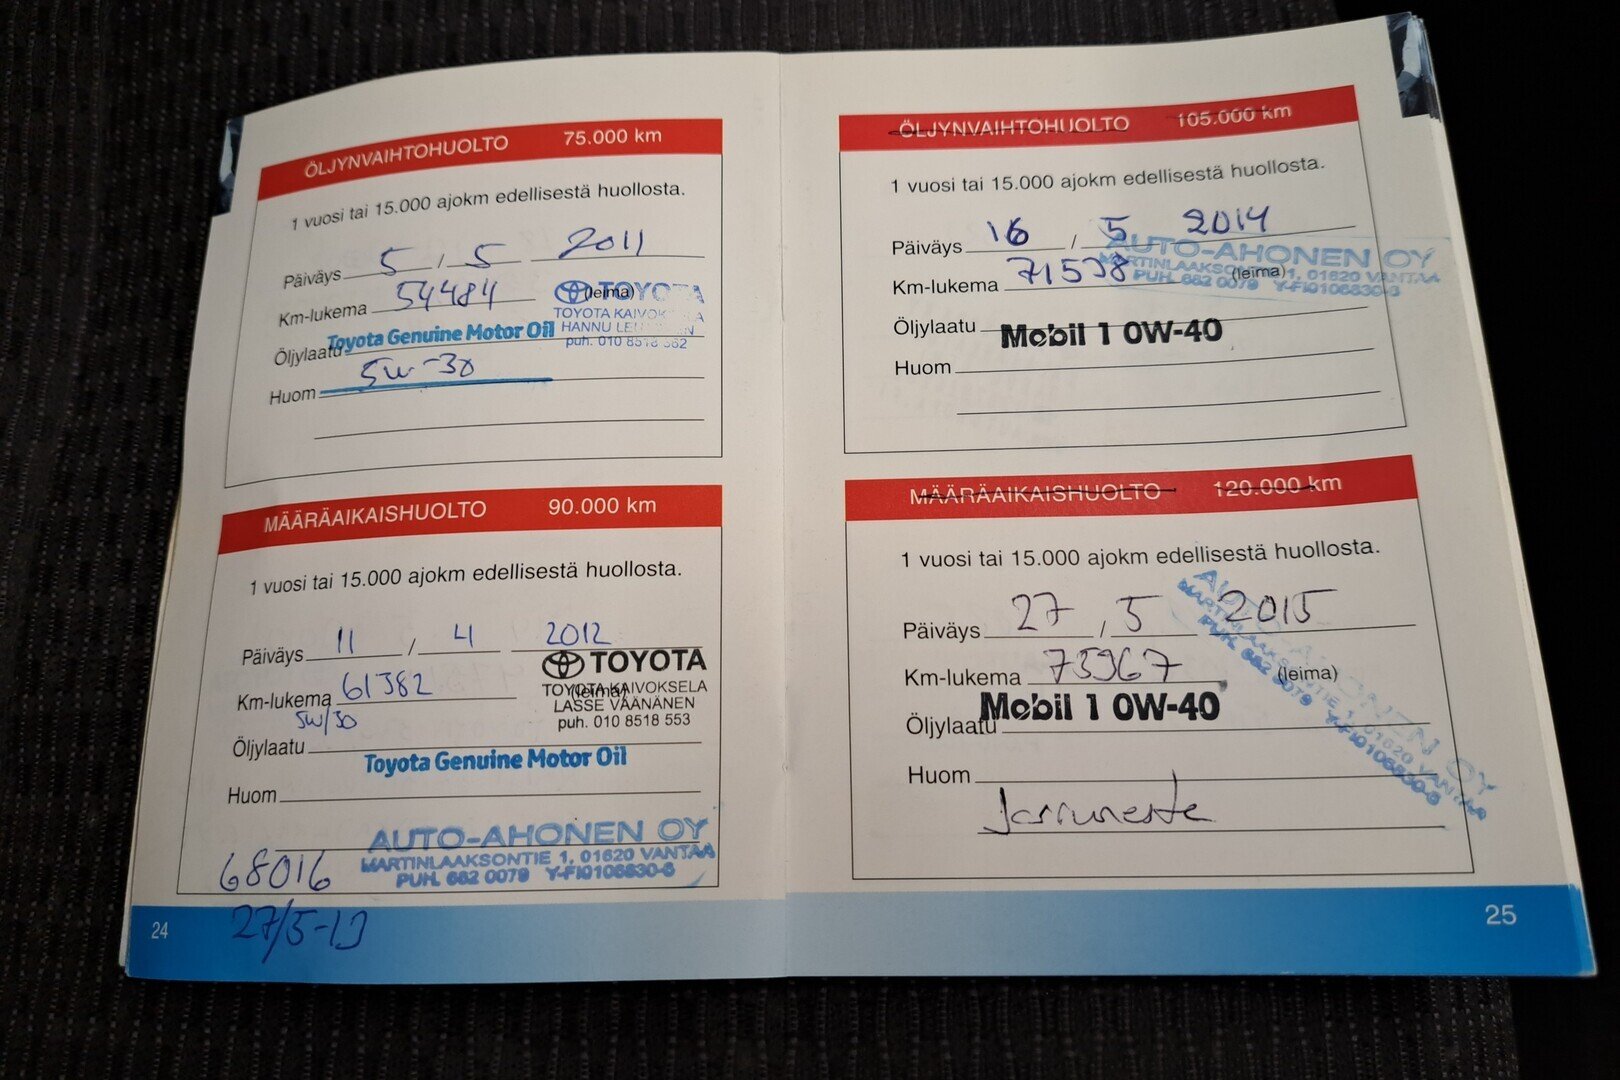 ÖLJYNVAIHTOHUOLTO 75.000 km
1 vuosi tai 15.000 ajokm edellisestä huollosta.
Päiväys 5 / 5 2011
Km-lukema 54484
(leima) TOYOTA
TOYOTA KAIVOKSELA
HANNU
puh. 010 8518
Öljylaatu Toyota Genuine Motor Oil
Huom 5w-30
MÄÄRÄAIKAISHUOLTO 90.000 km
1 vuosi tai 15.000 ajokm edellisestä huollosta.
Päiväys 11 / 4 2012
TOYOTA
Km-lukema 61382 (leima)
TOYOTA KAIVOKSELA
LASSE VÄÄNÄNEN
puh. 010 8518 553
5W/30
Öljylaatu
Toyota Genuine Motor Oil
Huom
AUTO-AHONEN OY
MARTINLAAKSONTIE 1, 01620 VANTAA
PUH. 682 0079 Y-FI0106830-6
68016
27/5-13
24
ÖLJYNVAIHTOHUOLTO 105.000 km
1 vuosi tai 15.000 ajokm edellisestä huollosta.
Päiväys 16 / 5 2014
AUTO-AHONEN OY
MARTINLAAKSONTIE 1, 01620 VANTAA
Km-lukema 71538 (leima)
PUH. 682 0079 Y-FI0106830-6
Öljylaatu Mobil 1 0W-40
Huom
MÄÄRÄAIKAISHUOLTO 120.000 km
1 vuosi tai 15.000 ajokm edellisestä huollosta.
Päiväys 27 / 5 2015
Km-lukema 73967 (leima)
AUTO-AHONEN OY
MARTINLAAKSONTIE 1, 01620 VANTAA
PUH. 682 0079 Y-FI0106830-6
Öljylaatu Mobil 1 0W-40
Huom
Jarruneste
25